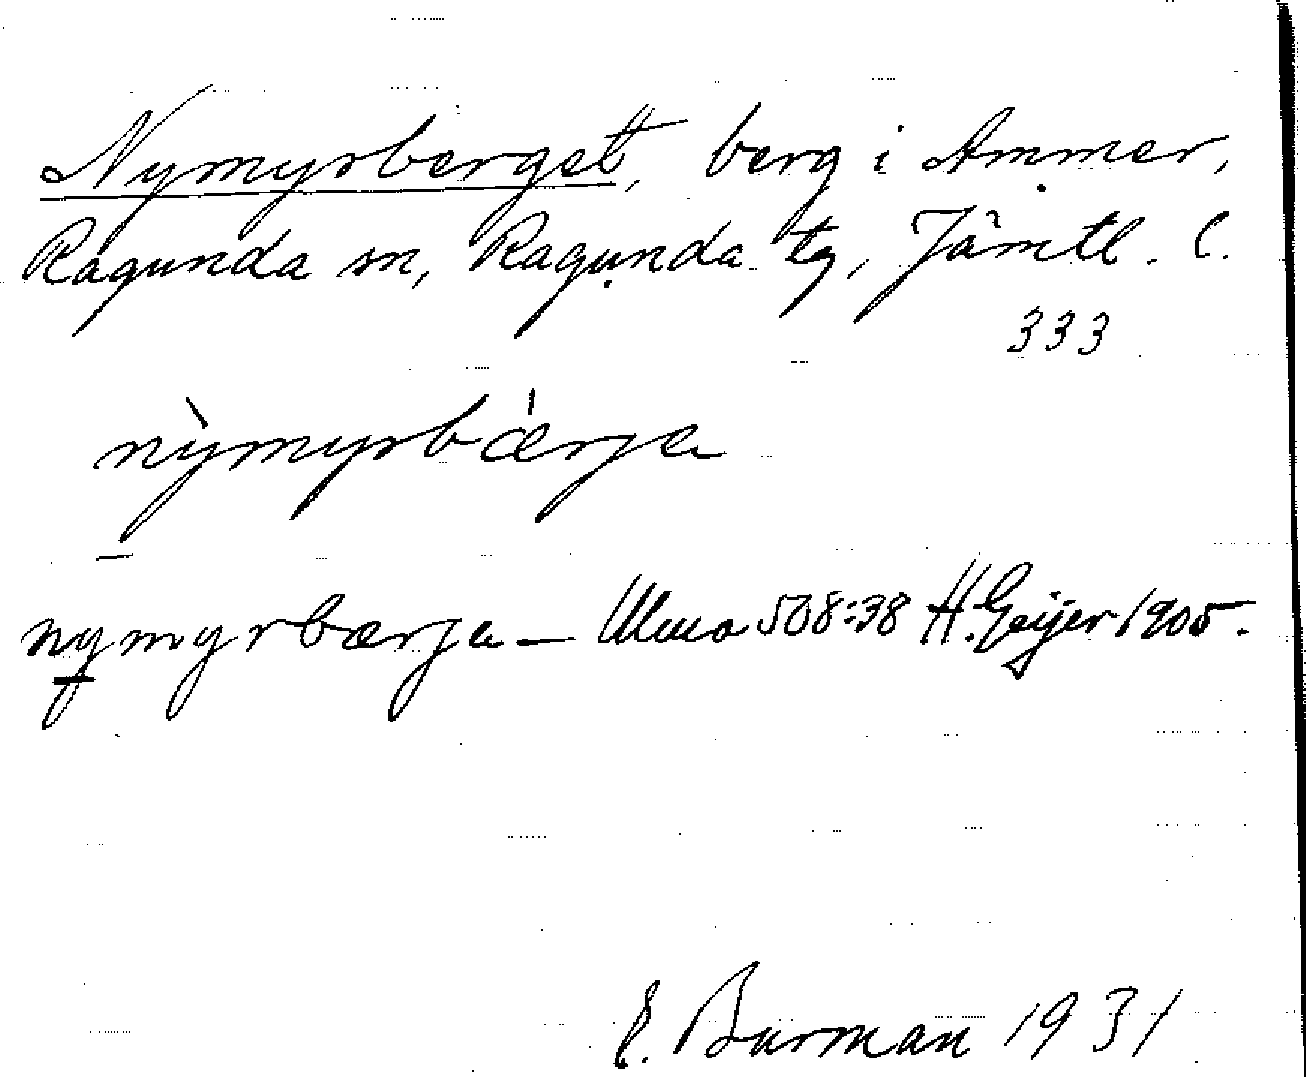 Nymyrberget, berg i Ammer,
Ragunda sn, Ragunda tg, Jämtl. l.
333
nỳmyrbǽrja
nymyrbærja – Ulma 508:38 H. Geijer 1905.
E. Burman 1931